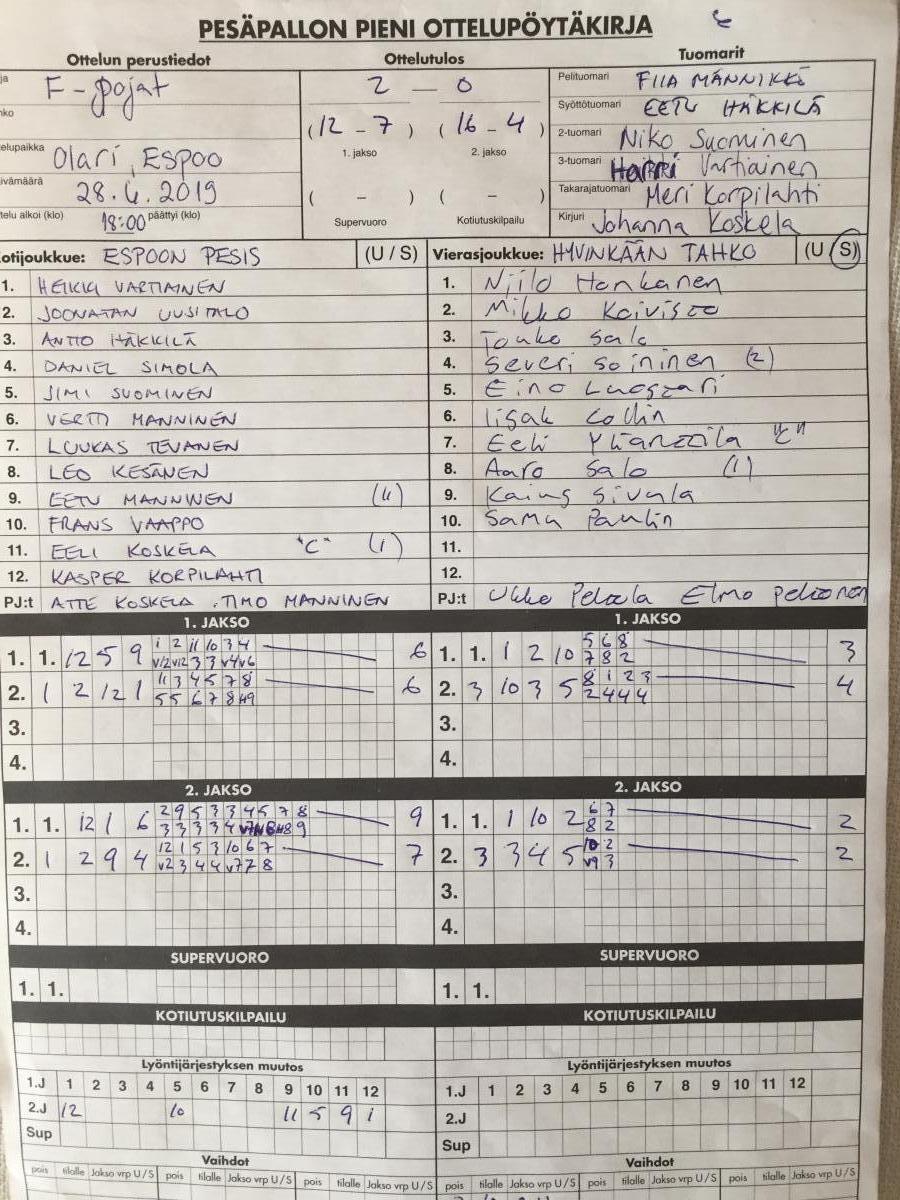 PESÄPALLON PIENI OTTELUPÖYTÄKIRJA
Ottelun perustiedot Ottelutulos Tuomarit
F-pojat 2 - 0 Pelituomari FIIA MÄNNIKKÖ
Syöttötuomari EETU HÄKKILÄ
(12 - 7) (16 - 4) 2-tuomari Niko Suominen
1. jakso 2. jakso
Olari, Espoo 3-tuomari Harri Vartiainen
28.4.2019 ( - ) ( - ) Takarajatuomari Meri Korpilahti
18:00 päättyi (klo) Supervuoro Kotiutuskilpailu Kirjuri Johanna Koskela
otijoukkue: ESPOON PESIS (U / S) Vierasjoukkue: HYVINKÄÄN TAHKO (U / S)
1. HEIKKI VARTIAINEN 1. Niilo Honkanen
2. JOONATAN UUSITALO 2. Mikko Koivisto
3. ANTTO HÄKKILÄ 3. Touko Salo
4. DANIEL SIMOLA 4. Severi Soininen (2)
5. JIMI SUOMINEN 5. Eino
6. VERTTI MANNINEN 6. Iisak Collin
7. LUUKAS TEVANEN 7. Eeli "C"
8. LEO KESÄNEN 8. Aaro Salo (1)
9. EETU MANNINEN (4) 9. Sivula
10. FRANS VAAPPO 10. Samu Paulin
11. EELI KOSKELA "C" (1) 11.
12. KASPER KORPILAHTI 12.
PJ:t ATTE KOSKELA, TIMO MANNINEN PJ:t Ukko Elmo
1. JAKSO 1. JAKSO
1. 1. 12 5 9 1 2 11 10 3 4 6 1. 1. 1 2 10 5 6 8 3
v12 v12 3 3 v4 v6 7 8 2
2. 1 2 12 1 11 3 4 5 7 8 6 2. 3 10 3 5 8 1 2 3 4
5 5 6 7 8 H9 2 4 4 4
3. 3.
4. 4.
2. JAKSO 2. JAKSO
1. 1. 12 1 6 2 9 5 3 3 4 5 7 8 9 1. 1. 1 10 2 6 7 2
3 3 3 3 4 9 8 2
2. 1 2 9 4 12 1 5 3 10 6 7 7 2. 3 3 4 5 10 2 2
v2 3 4 4 v7 7 8 v9 3
3. 3.
4. 4.
SUPERVUORO SUPERVUORO
1. 1. 1. 1.
KOTIUTUSKILPAILU KOTIUTUSKILPAILU
Lyöntijärjestyksen muutos Lyöntijärjestyksen muutos
1.J 1 2 3 4 5 6 7 8 9 10 11 12 1.J 1 2 3 4 5 6 7 8 9 10 11 12
2.J 12 10 11 5 9 1 2.J
Sup Sup
Vaihdot Vaihdot
pois tilalle Jakso vrp U / S pois tilalle Jakso vrp U / S pois tilalle Jakso vrp U / S pois tilalle Jakso vrp U / S pois tilalle Jakso vrp U / S pois tilalle Jakso vrp U / S